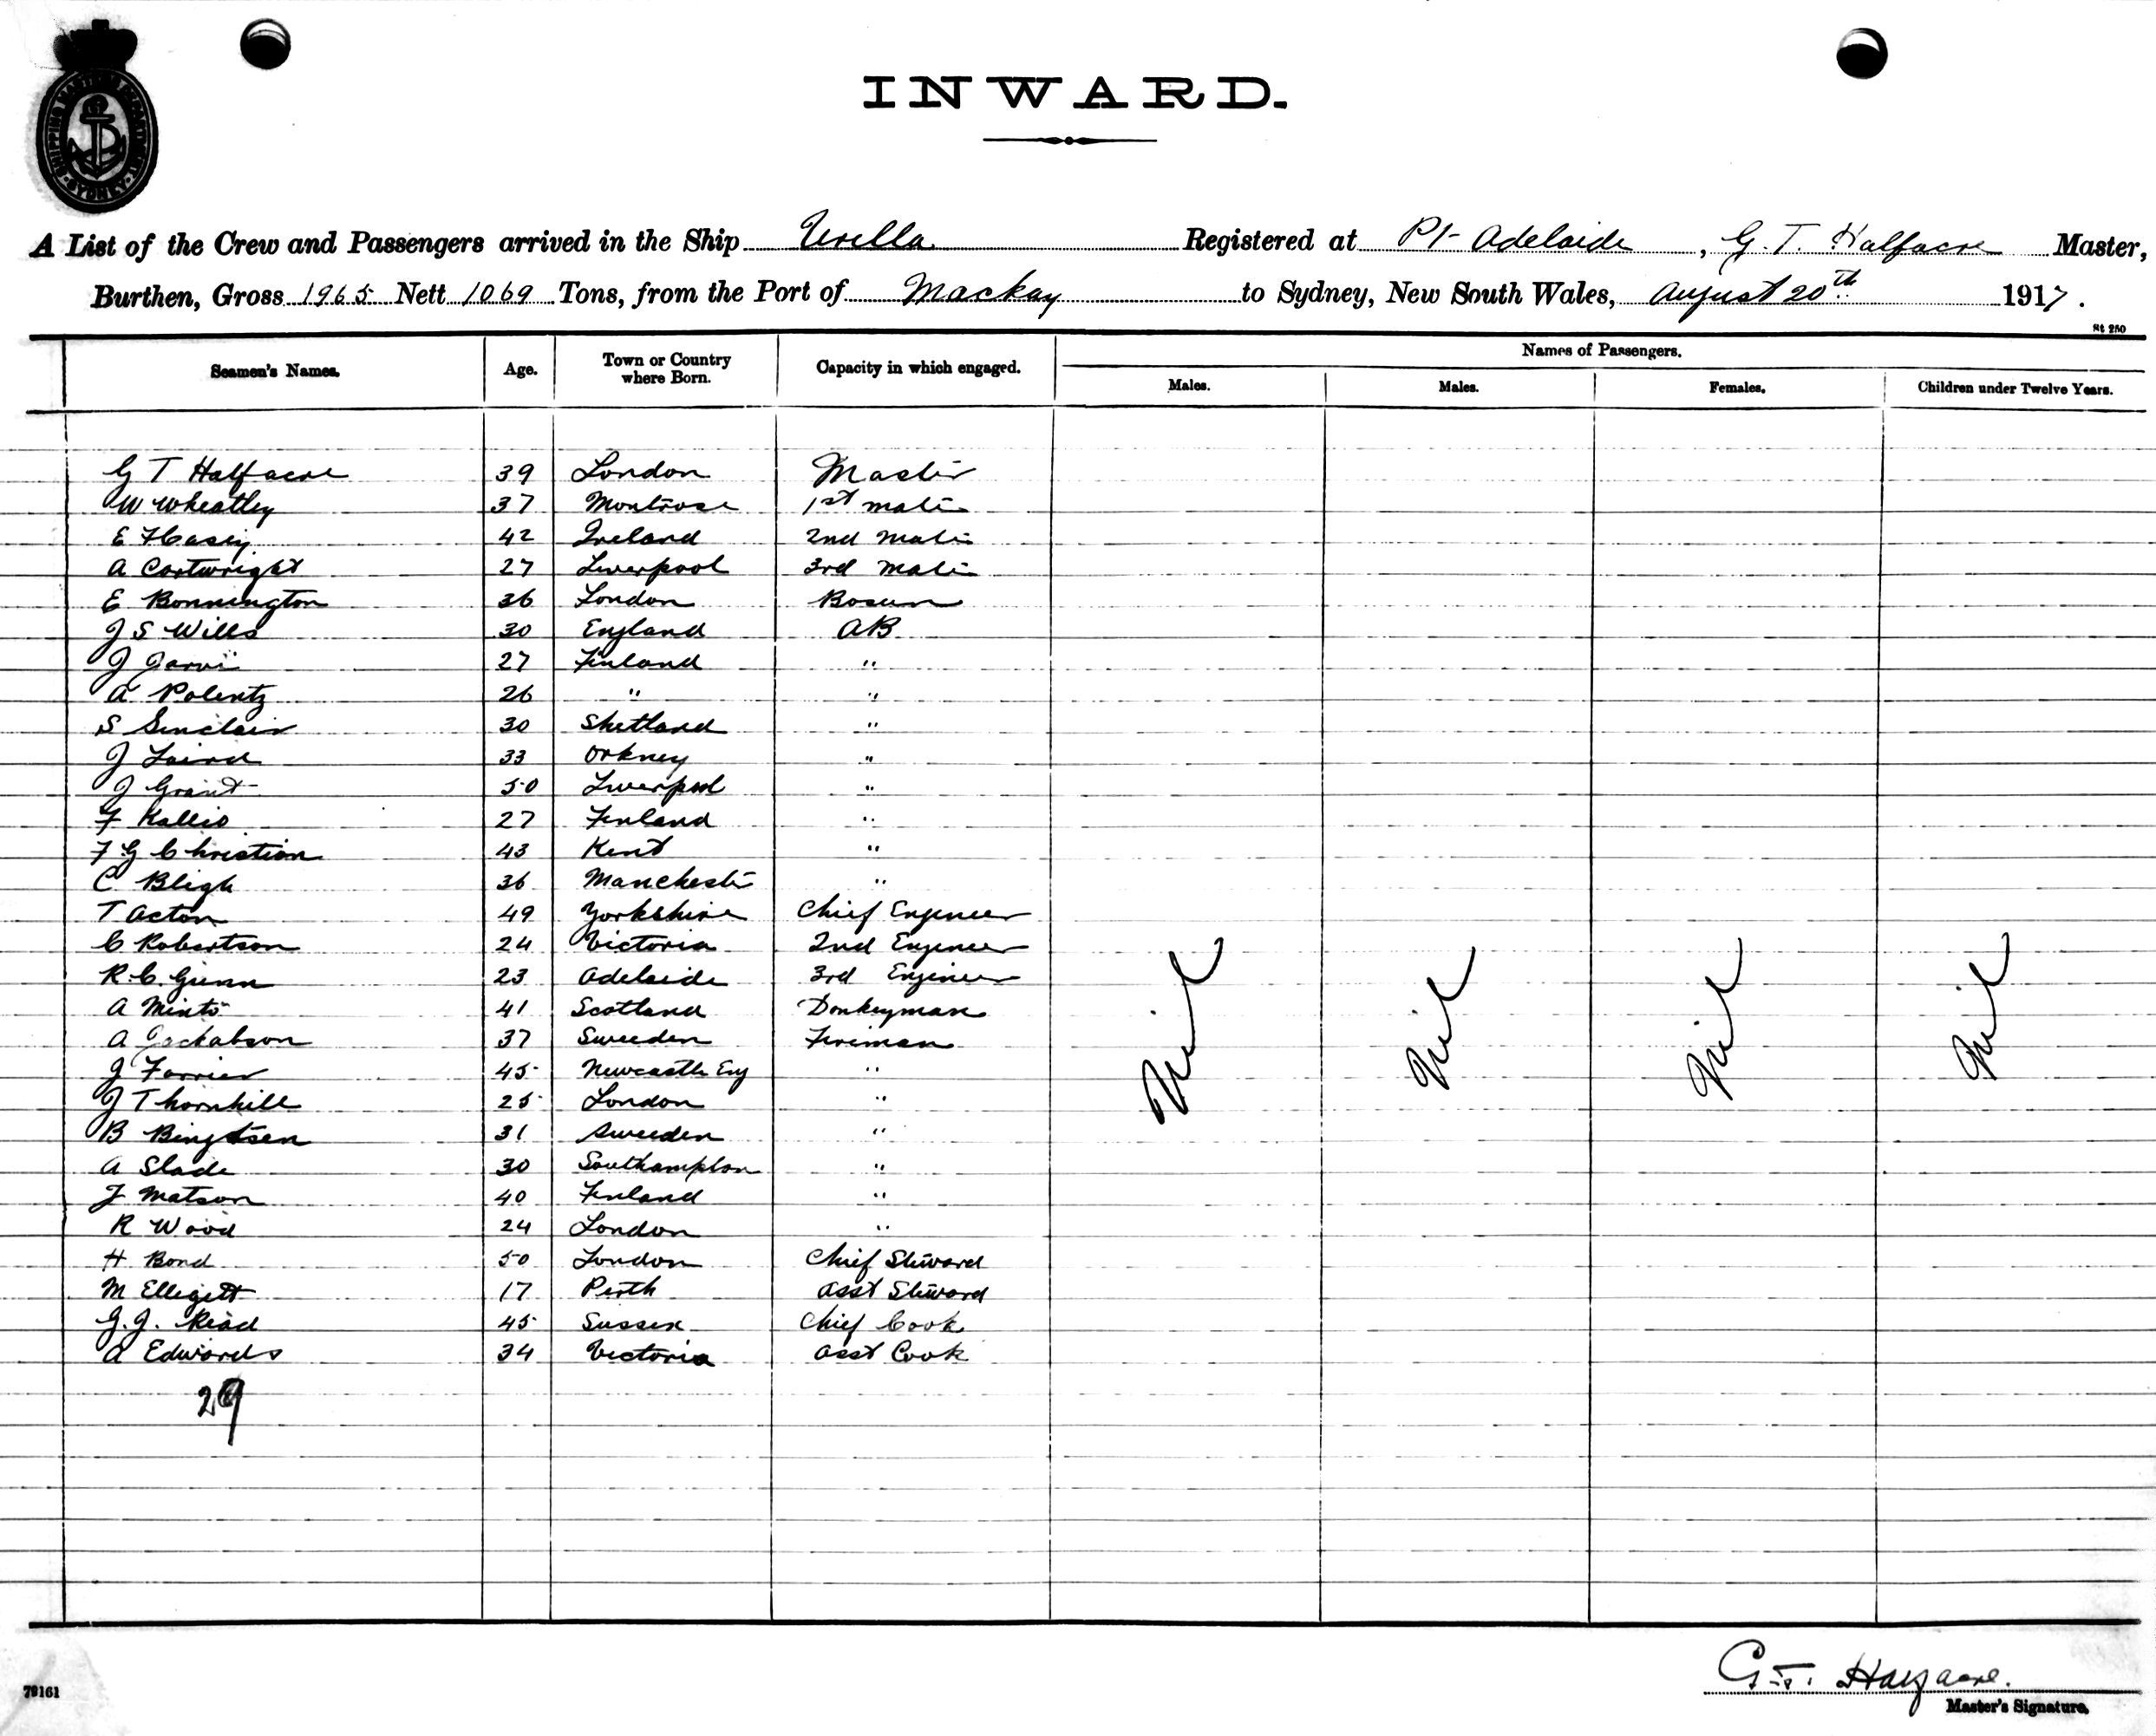 SHIPPING MASTER'S DEPARTMENT SYDNEY
INWARD.
A List of the Crew and Passengers arrived in the Ship Urilla Registered at Pt Adelaide, G. T. Halfacre Master,
Burthen, Gross 1965 Nett 1069 Tons, from the Port of Mackay to Sydney, New South Wales, August 20th 1917.
St 250
Seamen's Names. Age. Town or Country where Born. Capacity in which engaged. Names of Passengers.
Males. Males. Females. Children under Twelve Years.
G T Halfacre 39 London Master
W Wheatley 37 Montrose 1st mate
E Hasey 42 Ireland 2nd Mate
A Cartwright 27 Liverpool 3rd Mate
E Bonnington 36 London Bosun
J S Wills 30 England AB
J Jarvi 27 Finland "
A Polentz 26 " "
S Sinclair 30 Shetland "
J Laird 33 Orkney "
J Grant 50 Liverpool "
F Kallio 27 Finland "
F G Christian 43 Kent "
C Bligh 36 Manchester "
T Acton 49 Yorkshire Chief Engineer
C Robertson 24 Victoria 2nd Engineer
R. C. Gunn 23 Adelaide 3rd Engineer
A Minto 41 Scotland Donkeyman
A Jackabson 37 Sweeden Fireman
J Farrier 45 Newcastle Eng "
J Thornhill 25 London "
B Bingtsen 31 Sweeden "
A Slade 30 Southampton "
J Matson 40 Finland "
R Wood 24 London "
H Bond 50 London Chief Steward
M Elligett 17 Perth Asst Steward
G. J. Read 45 Sussex Chief Cook
A Edwards 34 Victoria Asst Cook
Nil Nil Nil Nil
29
G. T. Halfacre.
Master's Signature.
79161